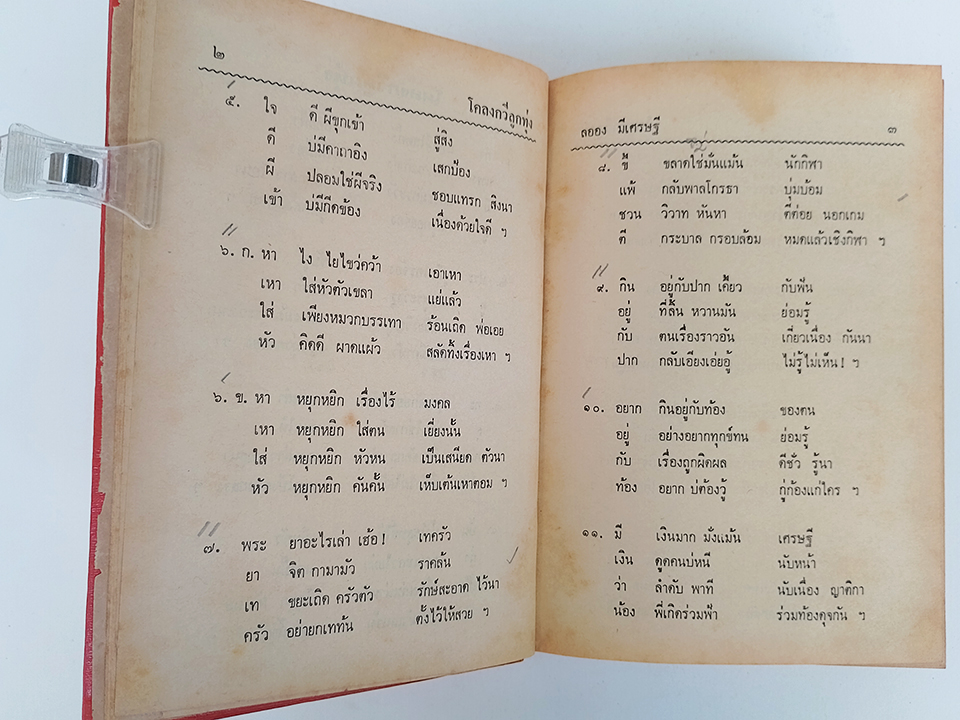 ๒
โคลงกวีลูกทุ่ง
๕. ใจ ดี ผีขุกเข้า สู่สิง
ดี บ่มีคาถาอิง เสกป้อง
ผี ปลอมใช่ผีจริง ชอบแทรก สิงนา
เข้า บ่มีกีดข้อง เนื่องด้วยใจดี ฯ
๖. ก. หา ไง ไยไขว่คว้า เอาเหา
เหา ใส่หัวตัวเขลา แย่แล้ว
ใส่ เพียงหมวกบรรเทา ร้อนเถิด พ่อเอย
หัว คิดดี ผาดแผ้ว สลัดทิ้งเรื่องเหา ฯ
๖. ข. หา หยุกหยิก เรื่องไร้ มงคล
เหา หยุกหยิก ใส่ตน เยี่ยงนั้น
ใส่ หยุกหยิก หัวหน เป็นเสนียด ตัวนา
หัว หยุกหยิก คันคั้น เห็บเต้นเหาตอม ฯ
๗. พระ ยาอะไรเล่า เฮ้อ! เทครัว
ยา จิต กามามัว ราคล้น
เท ขยะเถิด ครัวตัว รักษ์สะอาด ไว้นา
ครัว อย่ายกเททัน ตั้งไว้ให้สวย ฯ
ลออง มีเศรษฐี
๓
๘. ขี้ ขลาดใช่มั่นแม้น นักกีฬา
แพ้ กลับพาลโกรธา บุ่มบ้อม
ชวน วิวาท หันหา ตีต่อย นอกเกม
ตี กระบาล กรอบล้อม หมดแล้วเชิงกีฬา ฯ
๙. กิน อยู่กับปาก เคี้ยว กับฟัน
อยู่ ที่ลิ้น หวานมัน ย่อมรู้
กับ ตนเรื่องราวอัน เกี่ยวเนื่อง กันนา
ปาก กลับเอียงเอ่ยอู้ ไม่รู้ไม่เห็น! ฯ
๑๐. อยาก กินอยู่กับท้อง ของตน
อยู่ อย่างอยากทุกข์ทน ย่อมรู้
กับ เรื่องถูกผิดผล ดีชั่ว รู้นา
ท้อง อยาก บ่ต้องวู้ กู่ก้องแก่ใคร ฯ
๑๑. มี เงินมาก มั่งแม้น เศรษฐี
เงิน ดูดคนบ่หนี นับหน้า
ว่า ลำดับ พาที นับเนื่อง ญาติกา
น้อง พี่เกิดร่วมฟ้า ร่วมท้องดุจกัน ฯ